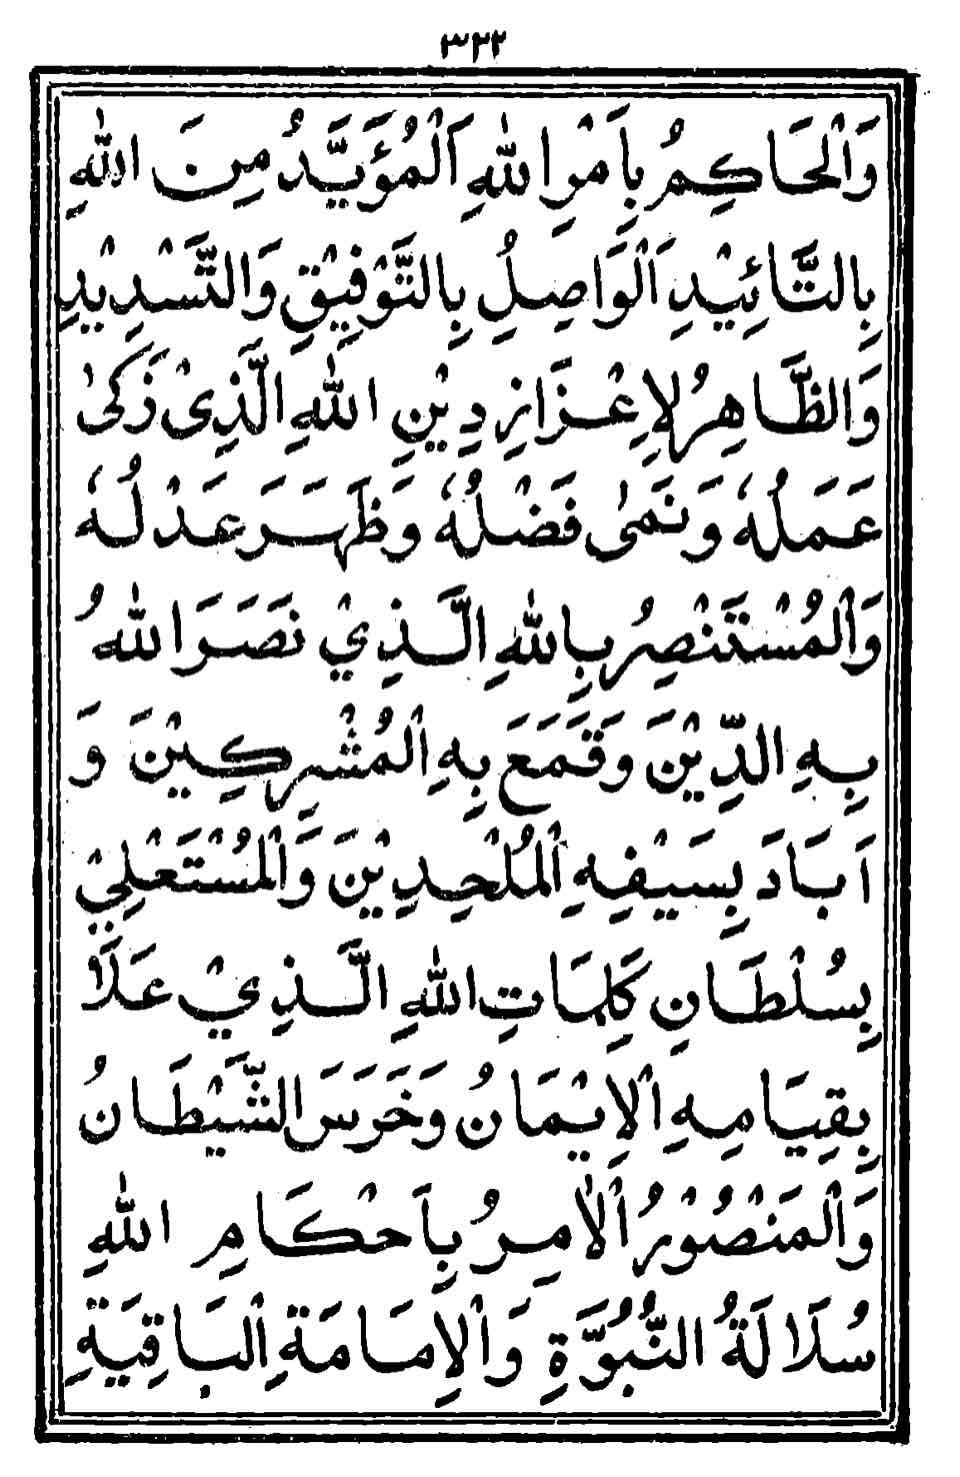 ٣٢٢
وَالْحَاكِمُ بِاَمْرِاللهِ اَلْمُؤَيَّدُ مِنَ اللهِ
بِالتَّائِيْدِ اَلْوَاصِلُ بِالتَّوْفِيْقِ وَالتَّسْدِيْدِ
وَالظَّاهِرُ لِاِعْزَازِ دِيْنِ اللهِ الَّذِيْ زَكٰى
عَمَلُهٗ وَنَمٰى فَضْلُهٗ وَظَهَرَ عَدْلُهٗ
وَالْمُسْتَنْصِرُ بِاللهِ الَّذِيْ نَصَرَ اللهُ
بِهِ الدِّيْنَ وَقَمَعَ بِهِ الْمُشْرِكِيْنَ وَ
اَبَادَ بِسَيْفِهِ الْمُلْحِدِيْنَ وَالْمُسْتَعْلِيْ
بِسُلْطَانِ كَلِمَاتِ اللهِ الَّذِيْ عَلَا
بِقِيَامِهِ الْاِيْمَانُ وَخَرَسَ الشَّيْطَانُ
وَالْمَنْصُوْرُ الْاٰمِرُ بِاَحْكَامِ اللهِ
سُلَالَةُ النُّبُوَّةِ وَالْاِمَامَةِ الْبَاقِيَةِ